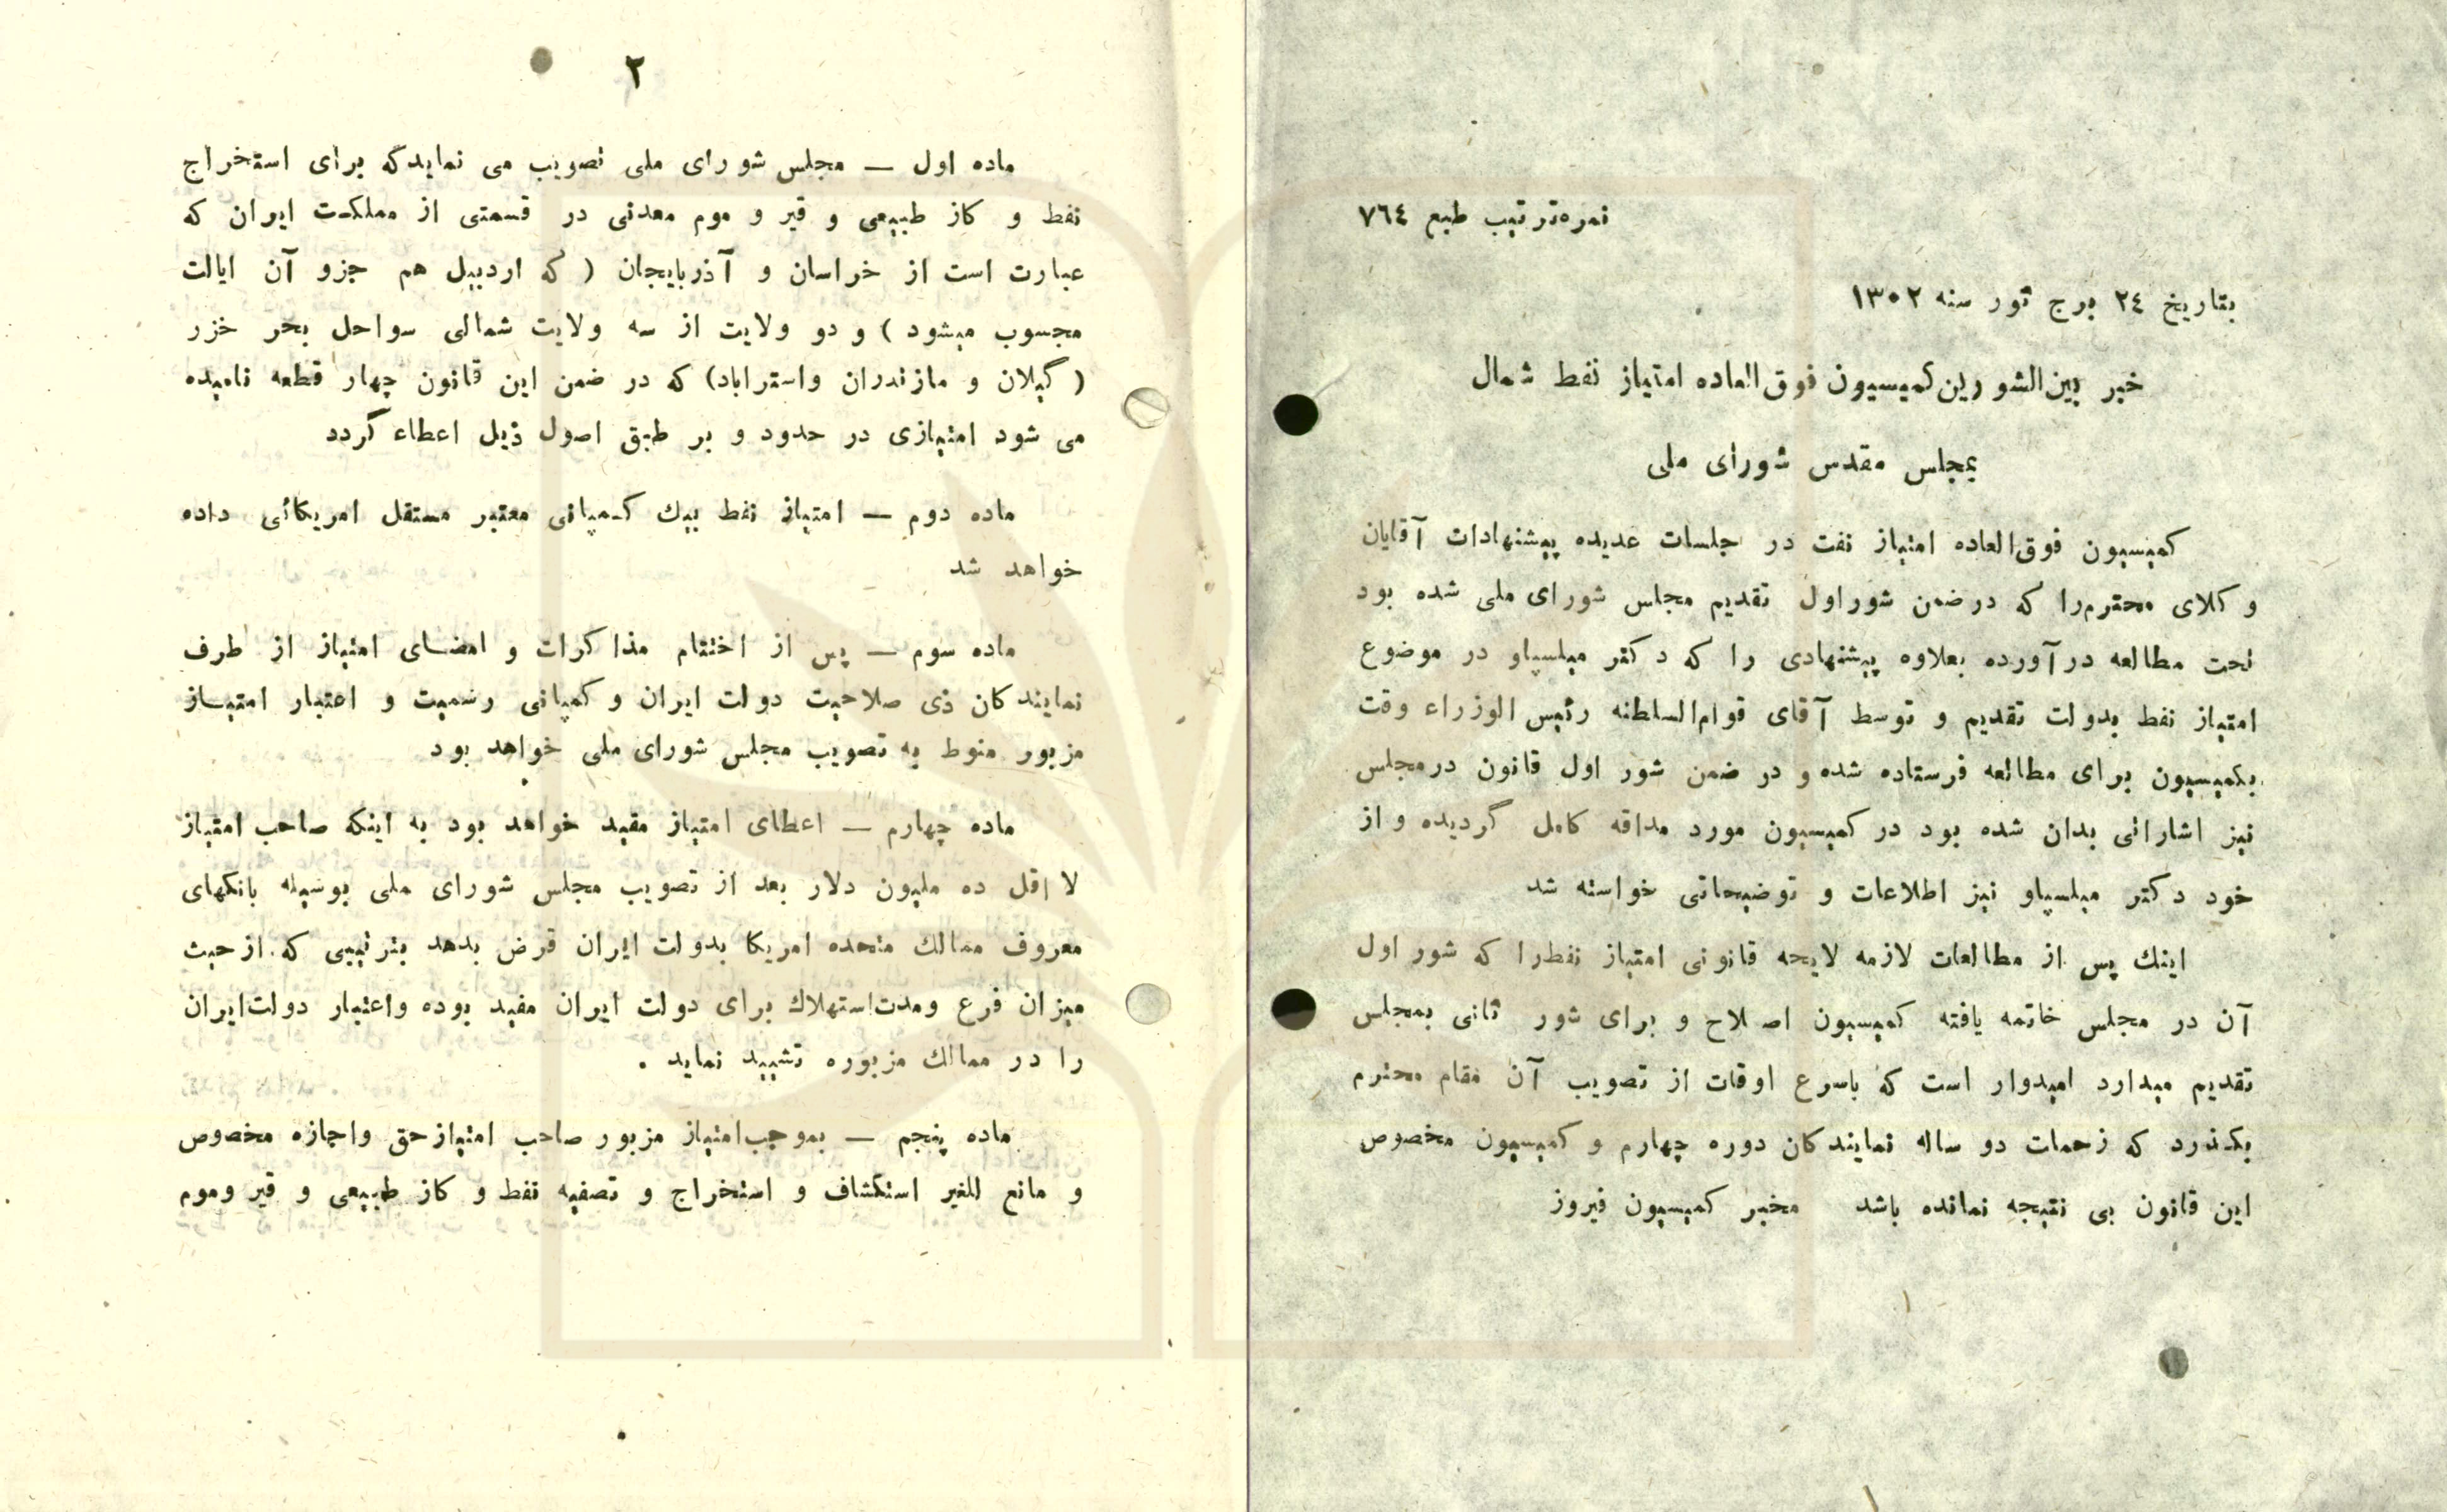 نمره‌ترتیب طبع ٧٦٤
بتاریخ ٢٤ برج ثور سنه ١٣٠٢
خبر بین‌الشورین کمیسیون فوق‌العاده امتیاز نفط شمال
بمجلس مقدس شورای ملی
کمیسیون فوق‌العاده امتیاز نفت در جلسات عدیده پیشنهادات آقایان
وکلای محترم‌را که درضمن شوراول تقدیم مجلس شورای ملی شده بود
تحت مطالعه درآورده بعلاوه پیشنهادی را که دکتر میلسپاو در موضوع
امتیاز نفط بدولت تقدیم و توسط آقای قوام‌السلطنه رئیس‌الوزراء وقت
بکمیسیون برای مطالعه فرستاده شده و در ضمن شور اول قانون درمجلس
نیز اشاراتی بدان شده بود در کمیسیون مورد مداقه کامل گردیده و از
خود دکتر میلسپاو نیز اطلاعات و توضیحاتی خواسته شد
اینك پس از مطالعات لازمه لایحه قانونی امتیاز نفط‌را که شور اول
آن در مجلس خاتمه یافته کمیسیون اصلاح و برای شور ثانی بمجلس
تقدیم میدارد امیدوار است که باسرع اوقات از تصویب آن مقام محترم
بکذرد که زحمات دو ساله نمایندکان دوره چهارم و کمیسیون مخصوص
این قانون بی نتیجه نمانده باشد مخبر کمیسیون فیروز
٢
ماده اول — مجلس شورای ملی تصویب می نماید که برای استخراج
نفط و کاز طبیعی و قیر و موم معدنی در قسمتی از مملکت ایران که
عبارت است از خراسان و آذربایجان ( که اردبیل هم جزو آن ایالت
محسوب میشود ) و دو ولایت از سه ولایت شمالی سواحل بحر خزر
( گیلان و مازندران واستراباد) که در ضمن این قانون چهار قطعه نامیده
می شود امتیازی در حدود و بر طبق اصول ذیل اعطاء گردد
ماده دوم — امتیاز نفط بیك کمپانی معتبر مستقل امریکائی داده
خواهد شد
ماده سوم — پس از اختتام مذاکرات و امضای امتیاز از طرف
نمایندکان ذی صلاحیت دولت ایران و کمپانی رسمیت و اعتبار امتیاز
مزبور منوط به تصویب مجلس شورای ملی خواهد بود
ماده چهارم — اعطای امتیاز مقید خواهد بود به اینکه صاحب امتیاز
لااقل ده ملیون دلار بعد از تصویب مجلس شورای ملی بوسیله بانکهای
معروف ممالك متحده امریکا بدولت ایران قرض بدهد بترتیبی که از حیث
میزان فرع ومدت‌استهلاك برای دولت ایران مفید بوده واعتبار دولت‌ایران
را در ممالك مزبوره تشیید نماید .
ماده پنجم — بموجب‌امتیاز مزبور صاحب امتیازحق واجازه مخصوص
و مانع للغیر استکشاف و استخراج و تصفیه نفط و کاز طبیعی و قیر وموم